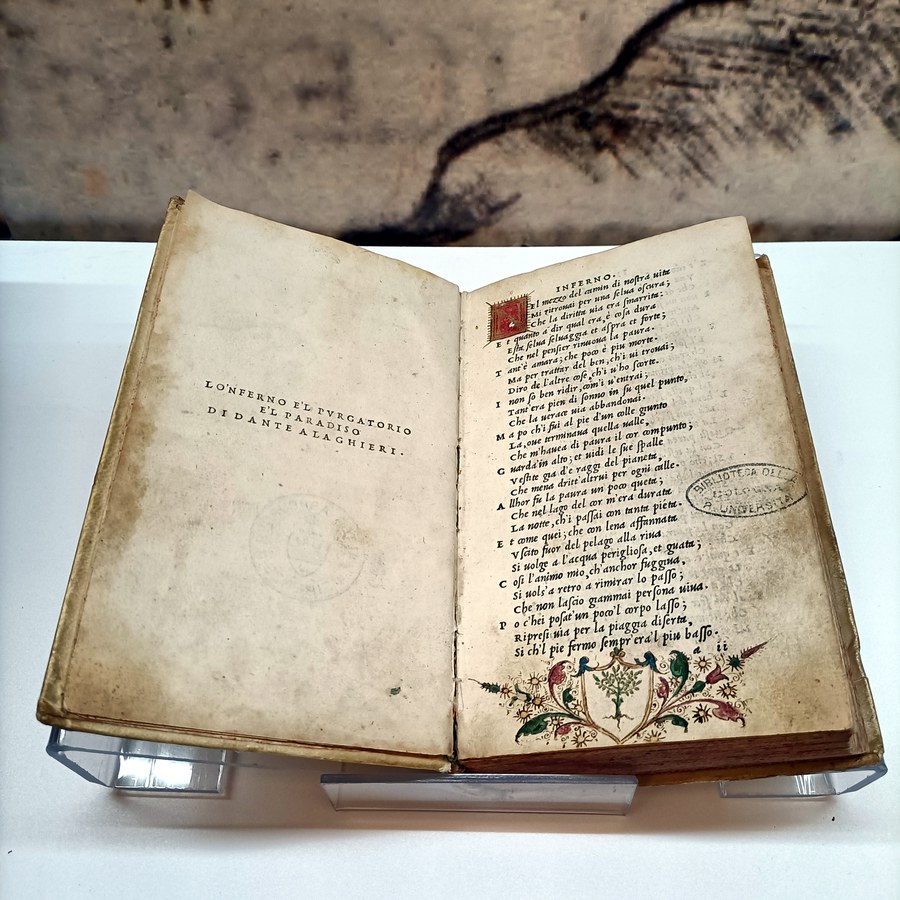 LO'NFERNO E'L PVRGATORIO
E'L PARADISO
DI DANTE ALAGHIERI.
INFERNO.
El mezzo del camin di nostra uita
Mi ritrouai per una selua oscura;
Che la diritta uia era smarrita:
E t quanto a dir qual era, è cosa dura
Esta selua seluaggia et aspra et forte;
Che nel pensier rinuoua la paura.
T ant'è amara; che poco è piu morte.
Ma per trattar del ben, ch'i ui trouai;
Diro de l'altre cose, ch'i u'ho scorte.
I non so ben ridir, com'i u'entrai;
Tant'era pien di sonno in su quel punto,
Che la uerace uia abbandonai.
M a po ch'i fui al pie d'un colle giunto
La, oue terminaua quella ualle,
Che m'hauea di paura il cor compunto;
G uarda'in alto; et uidi le sue spalle
Vestite gia d'e raggi del pianeta,
Che mena dritt'altrui per ogni calle.
A llhor fu la paura un poco queta;
Che nel lago del cor m'era durata
La notte, ch'i passai con tanta pièta.
E t come quei; che con lena affannata
Vscito fuor del pelago alla riua
Si uolge a l'acqua perigliosa, et guata;
C osi l'animo mio, ch'anchor fuggiua,
Si uols'a retro a rimirar lo passo;
Che non lascio giammai persona uiua.
P o c'hei posat'un poco'l corpo lasso;
Ripresi uia per la piaggia diserta,
Si ch'l pie fermo sempr'era'l piu basso.
a ii
BIBLIOTECA DELLA
R. UNIVERSITA